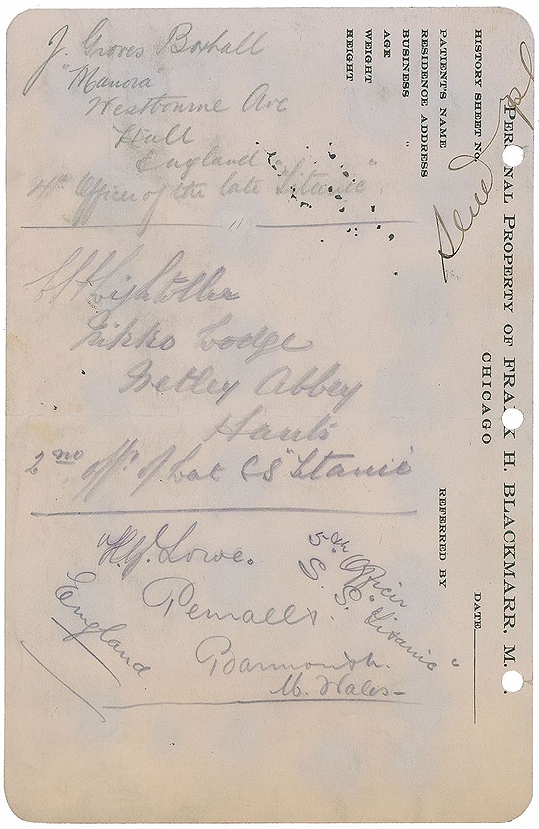 J. Groves Boxhall
"Manora"
Westbourne Ave
Hull
England
4th Officer of the late "Titanic"
C H Lightoller
Nikko Lodge
Netley Abbey
Hants
2nd offr of late SS Titanic
H.G. Lowe.
5th Officer
S.S. "Titanic"
Penrallt.
Barmouth.
N. Wales
England
PERSONAL PROPERTY OF FRANK H. BLACKMARR, M.
CHICAGO
HISTORY SHEET NO.
DATE
PATIENT'S NAME
REFERRED BY
RESIDENCE ADDRESS
BUSINESS "
AGE
WEIGHT
HEIGHT